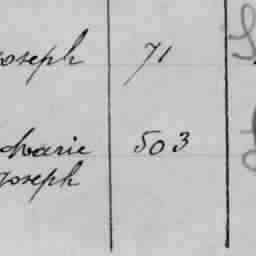 Joseph 71
Marie 503
Joseph